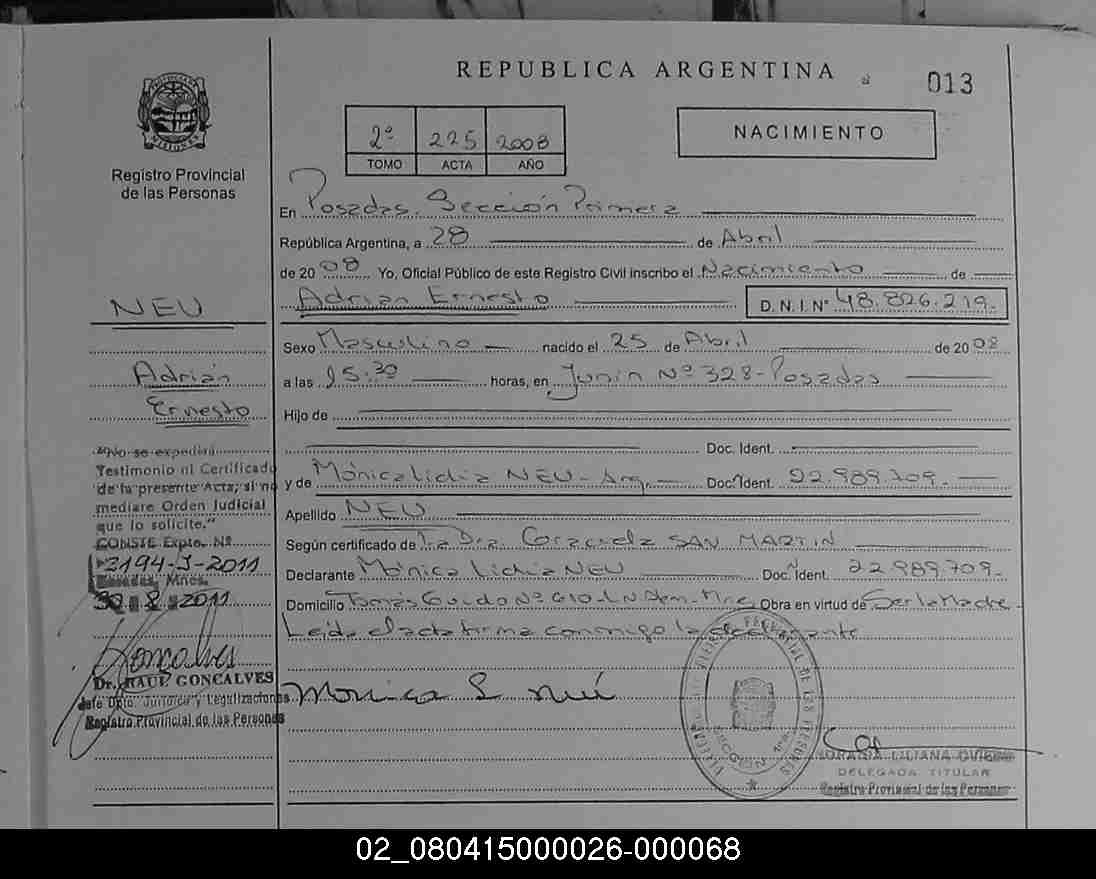 REPUBLICA ARGENTINA
013
PROVINCIA DE MISIONES
Registro Provincial
de las Personas
2º 225 2008
TOMO ACTA AÑO
NACIMIENTO
En Posadas. Sección Primera
República Argentina, a 28 de Abril
de 2008 Yo, Oficial Público de este Registro Civil inscribo el Nacimiento de
Adrián Ernesto D.N.I. Nº 48.826.219.
NEU
Adrián
Ernesto
Sexo Masculino nacido el 25 de Abril de 2008
a las 15:30 horas, en Junín Nº 328-Posadas
Hijo de
Doc. Ident.
y de Mónica Lidia NEU - Arg. Doc. Ident. 22.989.709.
Apellido NEU
Según certificado de La Dra. SAN MARTIN
Declarante Mónica Lidia NEU Doc. Ident. 22.989.709.
Domicilio Tomás Guido Nº 610-LN Alem-Mnes Obra en virtud de Ser la Madre
Leida el acta firma conmigo la declarante
"No se expedirá
Testimonio ni Certificado
de la presente Acta, si no
mediare Orden Judicial
que lo solicite."
CONSTE Expte. Nº
2194-J-2011
Posadas, Mnes.
30 8 2011
Goncalves
Dr. RAUL GONCALVES
Jefe Dpto. Jurídico y Legalizaciones
Registro Provincial de las Personas
Monica L Neú
PROVINCIAL DE LAS PERSONAS
LILIANA OVIEDO
DELEGADA TITULAR
Registro Provincial de las Personas
02_080415000026-000068